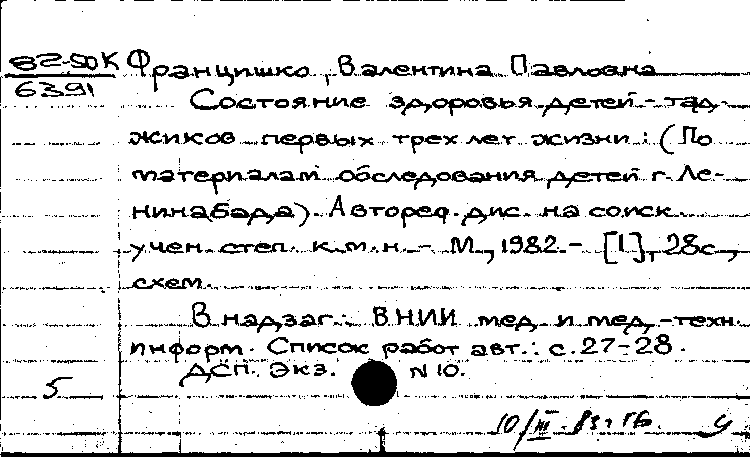 82-50К Францишко, Валентина Павловна
6391
Состояние здоровья детей-тад-
жиков первых трех лет жизни: (По
материалам обследования детей г. Ле-
нинабада). Автореф. дис. на соиск.
учен. степ. к.м.н. - М., 1982. - [1], 28с.,
схем.
В надзаг.: ВНИИ мед. и мед.-техн.
информ. Список работ авт.: с. 27-28.
ДСП. Экз. N 10.
5
10/III